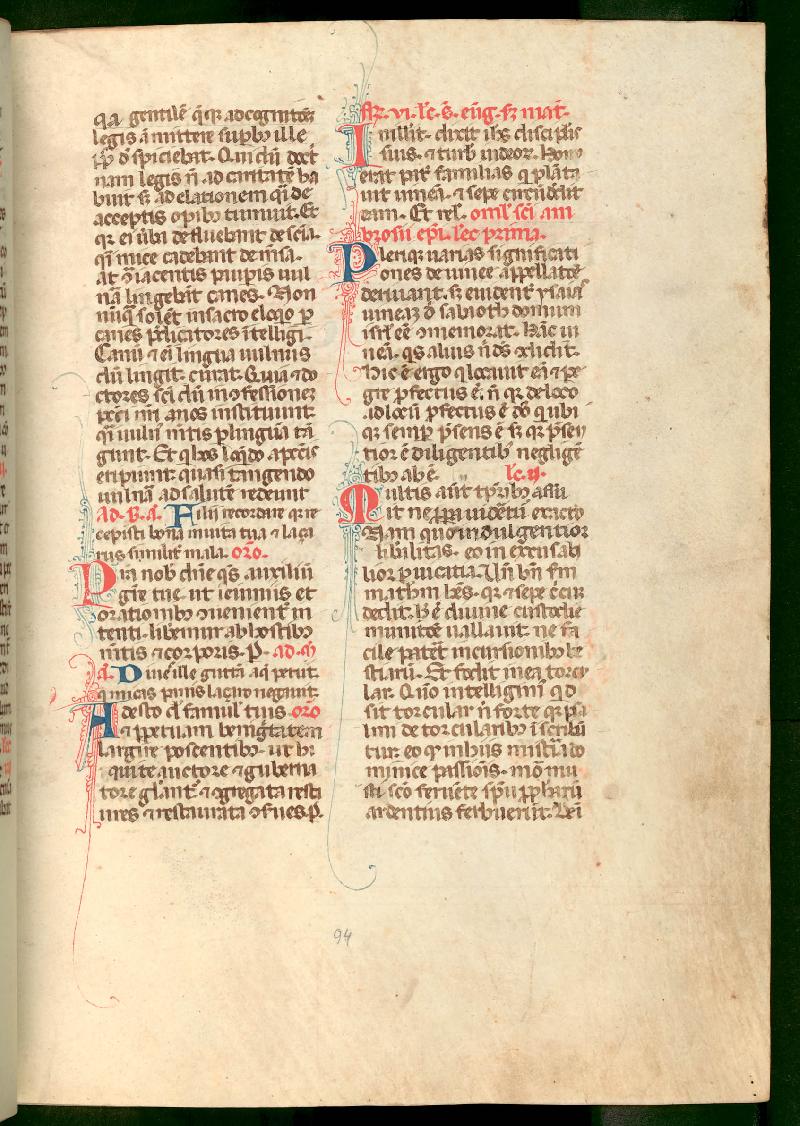 q̄a gentilē q̄q̄ȝ ad cognitōȝ
legis āmittere suꝑbꝰ ille
ꝓp̄ d̄spiciebat. Qui cū doct
nam legis ñ ad caritatē ha
buit sȝ ad elationem q̄i de
acceptis opibꝰ tumuit. Et
qȝ ei ūba defluebant de scīa.
q̄i mice cadebant de mīsa.
at ꝯ̄ iacentis paupis uul
nā lingebāt canes. Non
nūq̄ solēt in sacro eloqͦ ꝑ
canes p̄dicatores ītelligi.
Canū ⁊ ēi lingua uulnus
dū lingit. curat. Quia ⁊ do
ctores scī dū ī ꝯfessioneȝ
pccī nrī aīos instituunt.
q̄i uulnꝰ mētis ꝑ linguā tā
gunt. Et q̄ nos loq̄ndo a pcc̄is
eripiunt. quasi tangendo
uulnꝰa ad salutē redeunt
Ad. B. a. Filii recordare qȝ re
cepisti bona in uita tua ⁊ laça
rus similiť mala. or̄o.
Pia nob dñe q̄s auxiliū
gr̄e tue. ut ieiuniis et
orationibꝰ ꝯuenientˀ in
tenti. liberemˀ ab hostibꝰ
mētis ⁊ corporis. P. ad. m̄
a. Diues ille guttā aq̄ petiit.
qui micas panis laçaro negauit.
Adesto d̄ famul tuis or̄o
⁊ ꝑpetuam benignitatem
largire poscentibꝰ. ut hi
qui te auctore ⁊ guberna
tore gl̄antˀ ⁊ ꝯgregata resti
tues ⁊ restaurata ꝯserues. P.
fȝ. vi. lc̄. s̄. eūg. sȝ mat.
In illˀ t. dixit ih̄s disciplˀis
suis. ⁊ turbˀ iudeoȝ. Homo
erat patˀ familias q̄ plāta
uit uineā. ⁊ sepe circūdedit
eam. Et rel. omlˀ scī am
brosii ep̄i. lec prima.
Pleriq̄ uarias significati
ones de uinee appellatōe
deriuant. sȝ euidentˀ ysaias
uineaȝ d̄ sabaoth domum
isrlˀ eē ꝯmemorat. Hāc ui
neā. q̄s alius n̄ d̄s ꝯdidit.
Hic ē ergo q̄ locauit eā ⁊ ꝑe
gre ꝓfectus ē. ñ qȝ de loco
ad locū ꝓfectus ē dn̄s q̄ ubi
qȝ semꝑ p̄sens ē sȝ qȝ p̄sen
tior ē diligentibˀ neglige
tibꝰ abē. lc̄. ij.
Multis aūt tꝑibꝰ affu
it ne
Nam quo indulgentior
libilitas. eo inexcusabi
lior ꝑuicatia. Uñ bñ sm̄
matheū hēs. qȝ ⁊ sepē circū
dedit. h̄ ē diuine custodie
munitōe uallauit. ne fa
cile patēt incursionibꝰ be
stiarū. Et fodit in ea torcu
lar. Quō intelligimˀ qd
sit torcular ñ forte qȝ psa
lmi de torcularibꝰ īscribū
tur. eo qȝ in hiis mistia dn̄
minice passiōis. mō mu
sti scō feruēte sp̄u ꝓphˀarū
ardentius ferbuerūt. Uñ
94